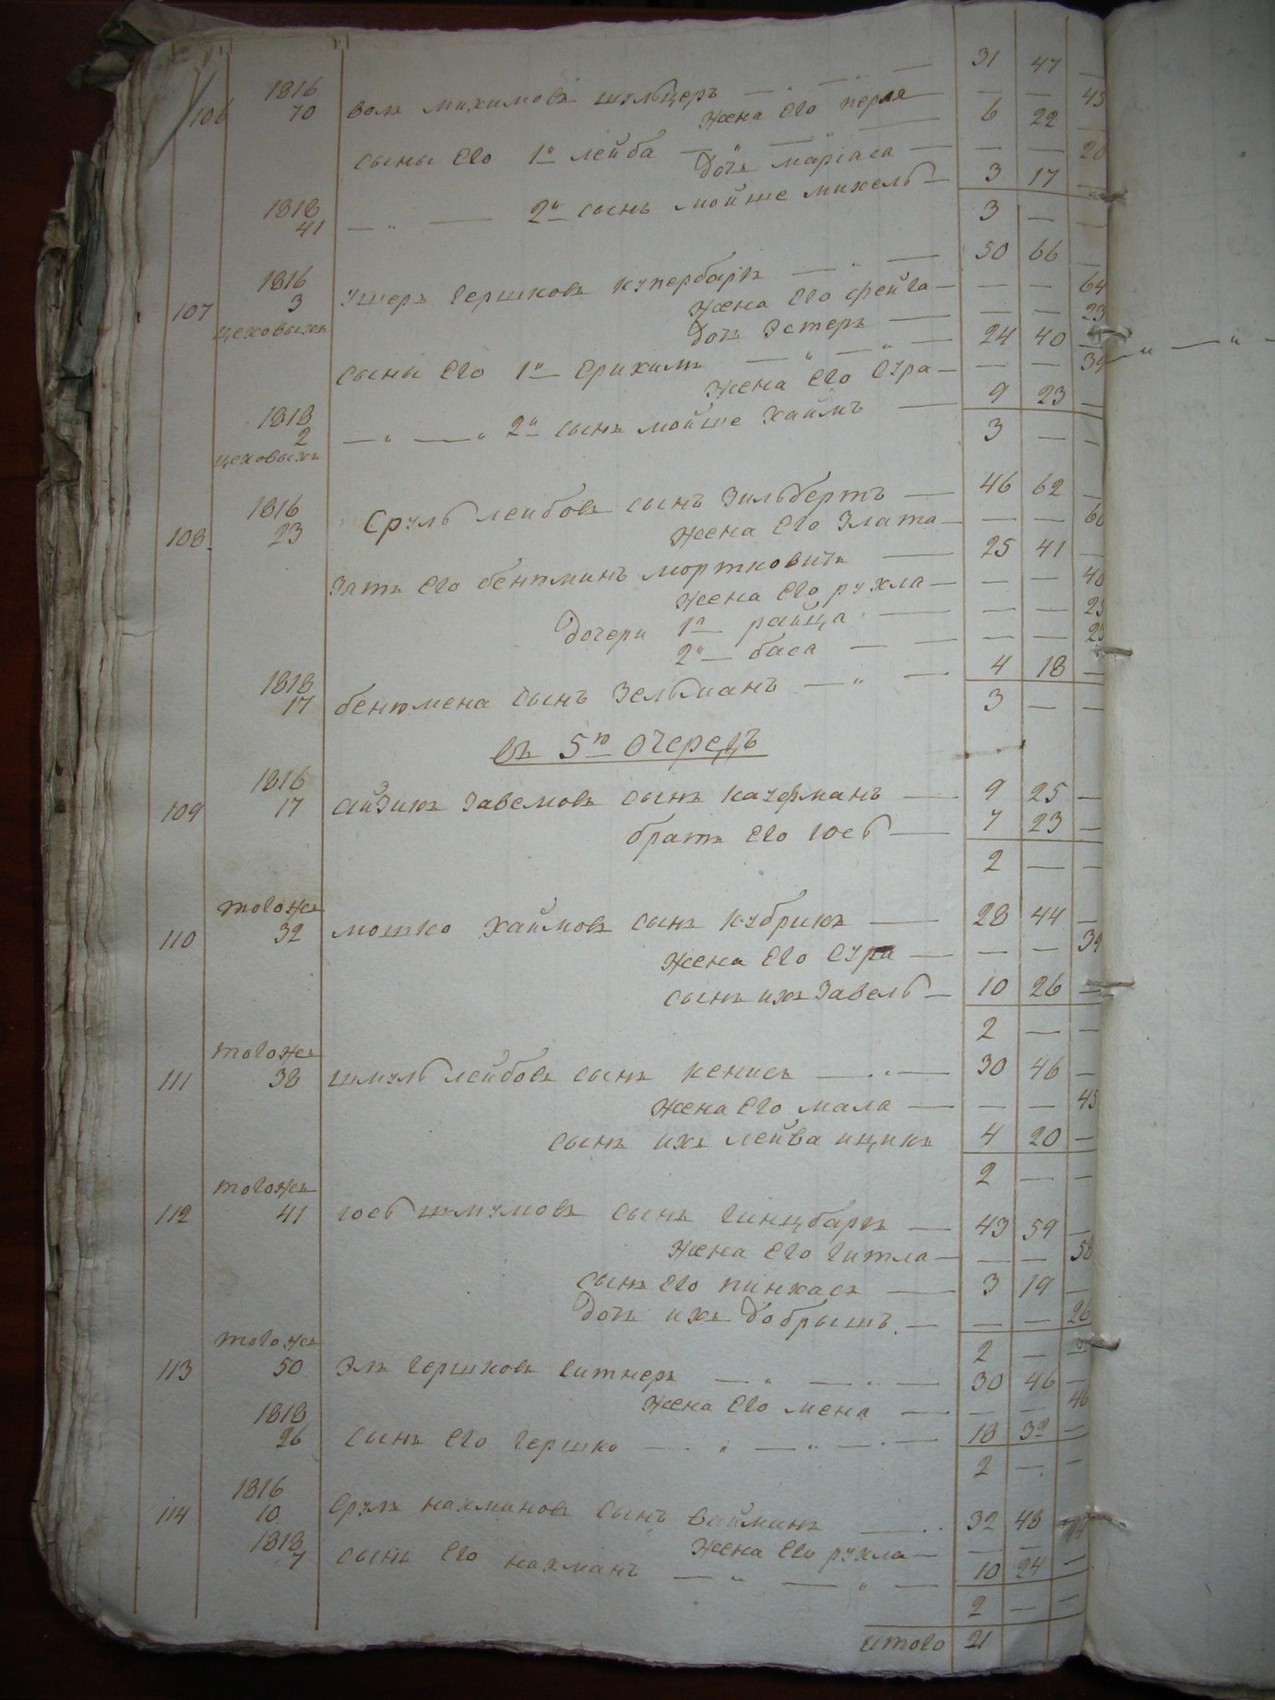 1816 31 47 —
106 70 Волъ Михимовъ Шульцеръ — 
жена его Перля — — — 45
6 22 —
сыны его 1й Лейба —
дочь Маріаса — — — 20
1818 2й сынъ Мойше Михель — 3 17 —
41 3 — —
1816 50 66 —
107 3 Ушеръ Гершковъ Купербаркъ
цеховыхъ жена его Фейга — — — 64
дочь Эстеръ — — — 23
сыны его 1й Ерихимъ — 24 40 —
жена его Сура — — — 39
1818 9 23 —
2 2й сынъ Мойше Хаймъ —
цеховыхъ 3 — —
1816 46 62 —
108 23 Сруль Лейбовъ сынъ Зильбертъ —
жена его Злата — — — 60
зять его Бенюминъ Мортковичъ — 25 41 —
жена его Рухла — — — 40
дочери 1я Райца — — — 25
2я Баса — — —
1818 4 18 —
17 Бенюмена сынъ Зельманъ —
3 — —
въ 5ю очередь
1816
109 17 Айзикъ Завелловъ сынъ Кауфманъ — 9 25 —
братъ его Іось — 7 23 —
2 — —
тогоже
110 32 Мошко Хаймовъ сынъ Кубрикъ — 28 44 —
жена его Сура — — — 39
сынъ ихъ Завель — 10 26 —
2 — —
тогоже
111 38 Шмуль Лейбовъ сынъ Кенисъ — 30 46 —
жена его Мала — — — 45
сынъ ихъ Лейва Ицикъ 4 20 —
2 — —
тогоже
112 41 Іось Шмуловъ сынъ Гинцбаркъ — 43 59 —
жена его Гитла — — — 58
сынъ его Пинхасъ — 3 19 —
дочь ихъ Добрышъ — — — 26
тогоже 2 — —
113 50 Эль Гершковъ Гитнеръ — 30 46 —
1818 жена его Мена — — — 46
26 сынъ его Гершко — 18 32 —
2 — —
1816
114 10 Срулъ Нахмановъ сынъ Вайманъ — 32 48 —
1818 жена его Рухла — — —
7 сынъ его Нахманъ — 10 24 —
2 — —
итого 21